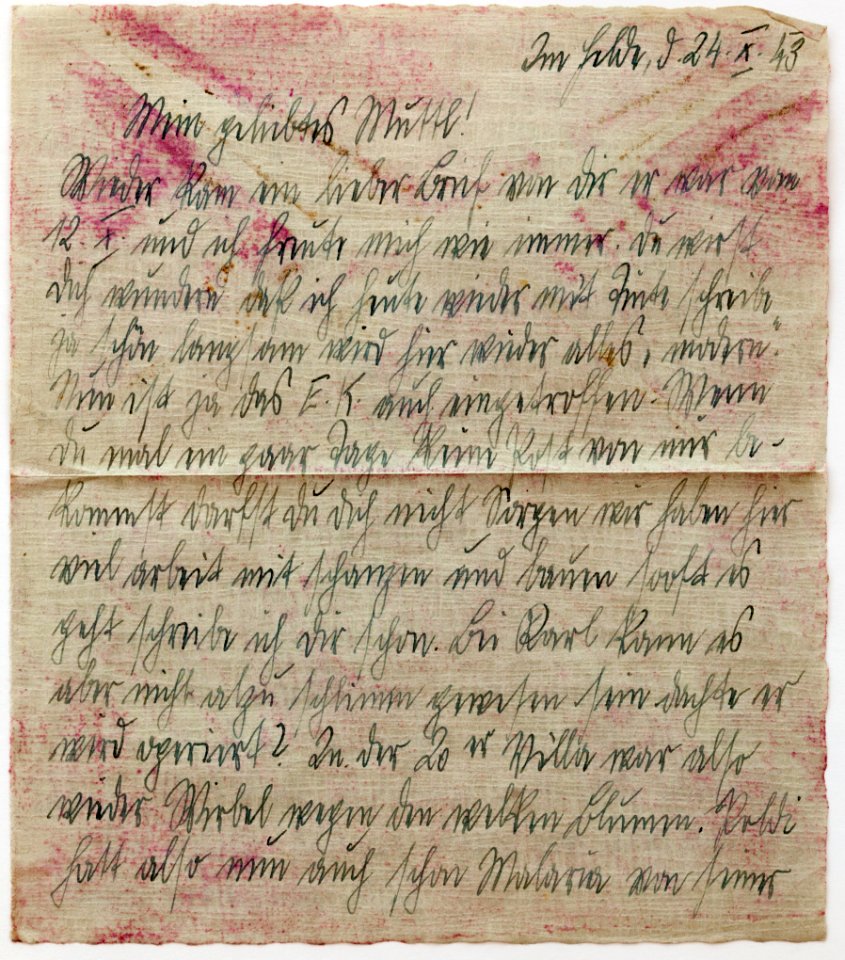 Im Felde, d. 24. X. 43
Mein geliebtes Muttl!
Wieder kam ein lieber Brief von dir er war vom
12. X. und ich freute mich wie immer. du wirst
dich wundern daß ich heute wieder mit Tinte schreibe
ja schön langsam wird hier wieder alles „modern“.
Nun ist ja das E. K. auch eingetroffen. Wenn
du mal ein paar Tage keine Post von mir be-
kommst darfst du dich nicht Sorgen wir haben hier
viel arbeit mit schanzen und bauen sooft es
geht schreibe ich dir schon. Bei Karl kann es
aber nicht alzu schlimm gewesen sein dachte er
wird operiert? In der 20er Villa war also
wieder Wirbel wegen den welken Blumen. Poldi
hatt also nun auch schon Malaria von seiner